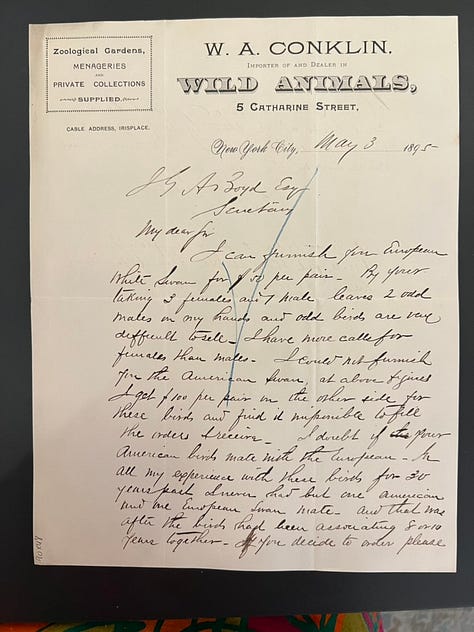 Zoological Gardens,
MENAGERIES
AND
PRIVATE COLLECTIONS
SUPPLIED.
CABLE ADDRESS, IRISPLACE.
W. A. CONKLIN,
IMPORTER OF AND DEALER IN
WILD ANIMALS,
5 CATHARINE STREET,
New York City, May 3 1895
A Boyd Esq
Secretary
My dear Sir
I can furnish you European
White Swan for $50 per pair - By your
taking 3 females and 1 male leaves 2 odd
males on my hands and odd birds are very
difficult to sell - I have more calls for
females than males - I could not furnish
you the American Swan, at above figures
I get $100 per pair on the other side for
these birds and find it impossible to fill
the orders I receive - I doubt if your
American birds mate with the European - In
all my experience with these birds for 30
years past I never had but one American
and one European Swan mate - and that was
after the birds had been associating 8 or 10
years together - If you decide to order please